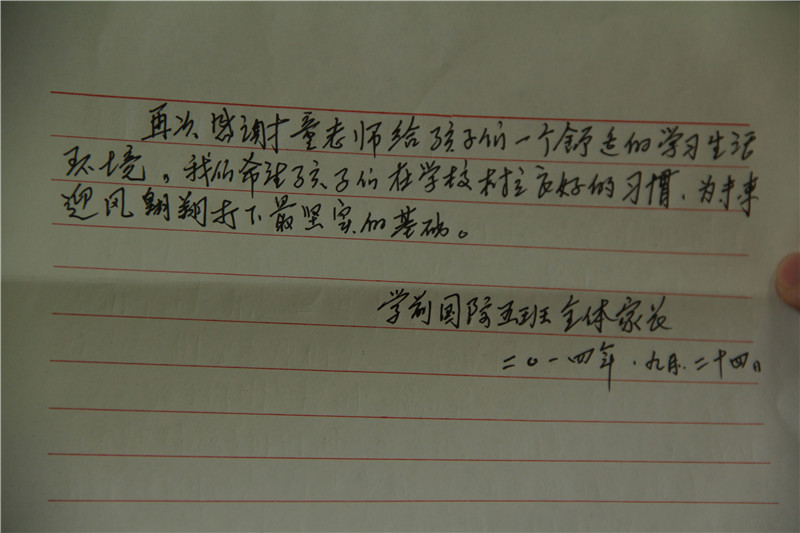 再次感谢童老师给孩子们一个舒适的学习生活
环境。我们希望孩子们在学校树立良好的习惯、为未来
迎风翱翔打下最坚实的基础。
学前国际五班全体家长
二〇一四年.九月.二十四日